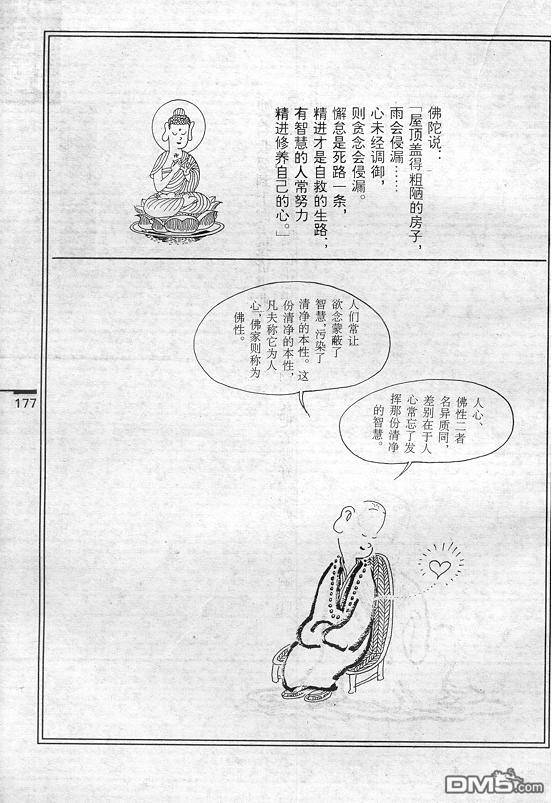 佛陀说：
「屋顶盖得粗陋的房子，
雨会侵漏……
心未经调御，
则贪念会侵漏。
懈怠是死路一条，
精进才是自救的生路；
有智慧的人常努力
精进修养自己的心。」
人们常让
欲念蒙蔽了
智慧，污染了
清净的本性。这
份清净的本性，
凡夫称它为人
心，佛家则称为
佛性。
人心、
佛性二者
名异质同，
差别在于人
心常忘了发
挥那份清净
的智慧。
177
DM5.com